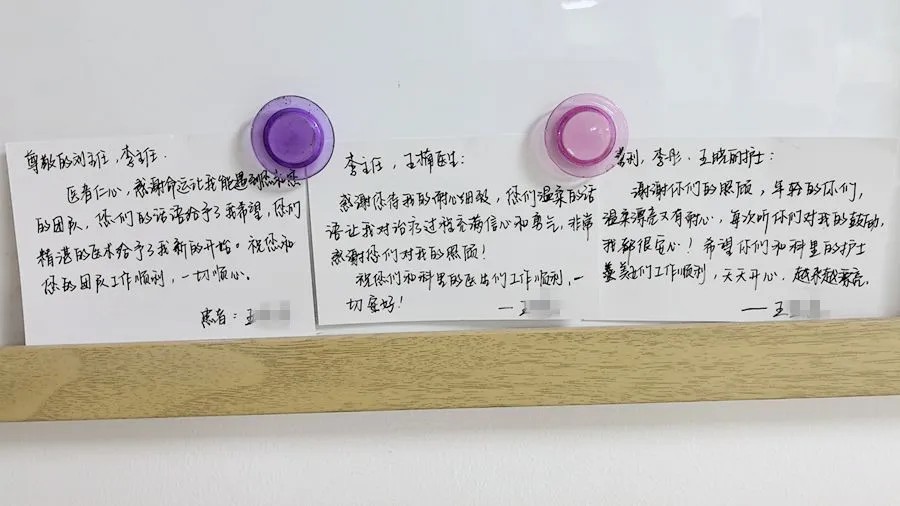 尊敬的刘主任,李主任.
医者仁心,感谢命运让我能遇到您和您
的团队,您们的话语给予了我希望,您们
精湛的医术给予了我新的开始。祝您和
您的团队工作顺利,一切顺心。
患者:王
李主任,王楠医生:
感谢您待我的耐心细致,您们温柔的话
语让我对治疗过程充满信心和勇气,非常
感谢您们对我的照顾!
祝您们和科里的医生们工作顺利,一
切安好!
—王
李彤.王晓丽护士:
谢谢你们的照顾,年轻的你们,
温柔漂亮又有耐心,每次听你们对我的鼓励,
我都很安心!希望你们和科里的护士
美女们工作顺利,天天开心.越来越漂亮.
——王